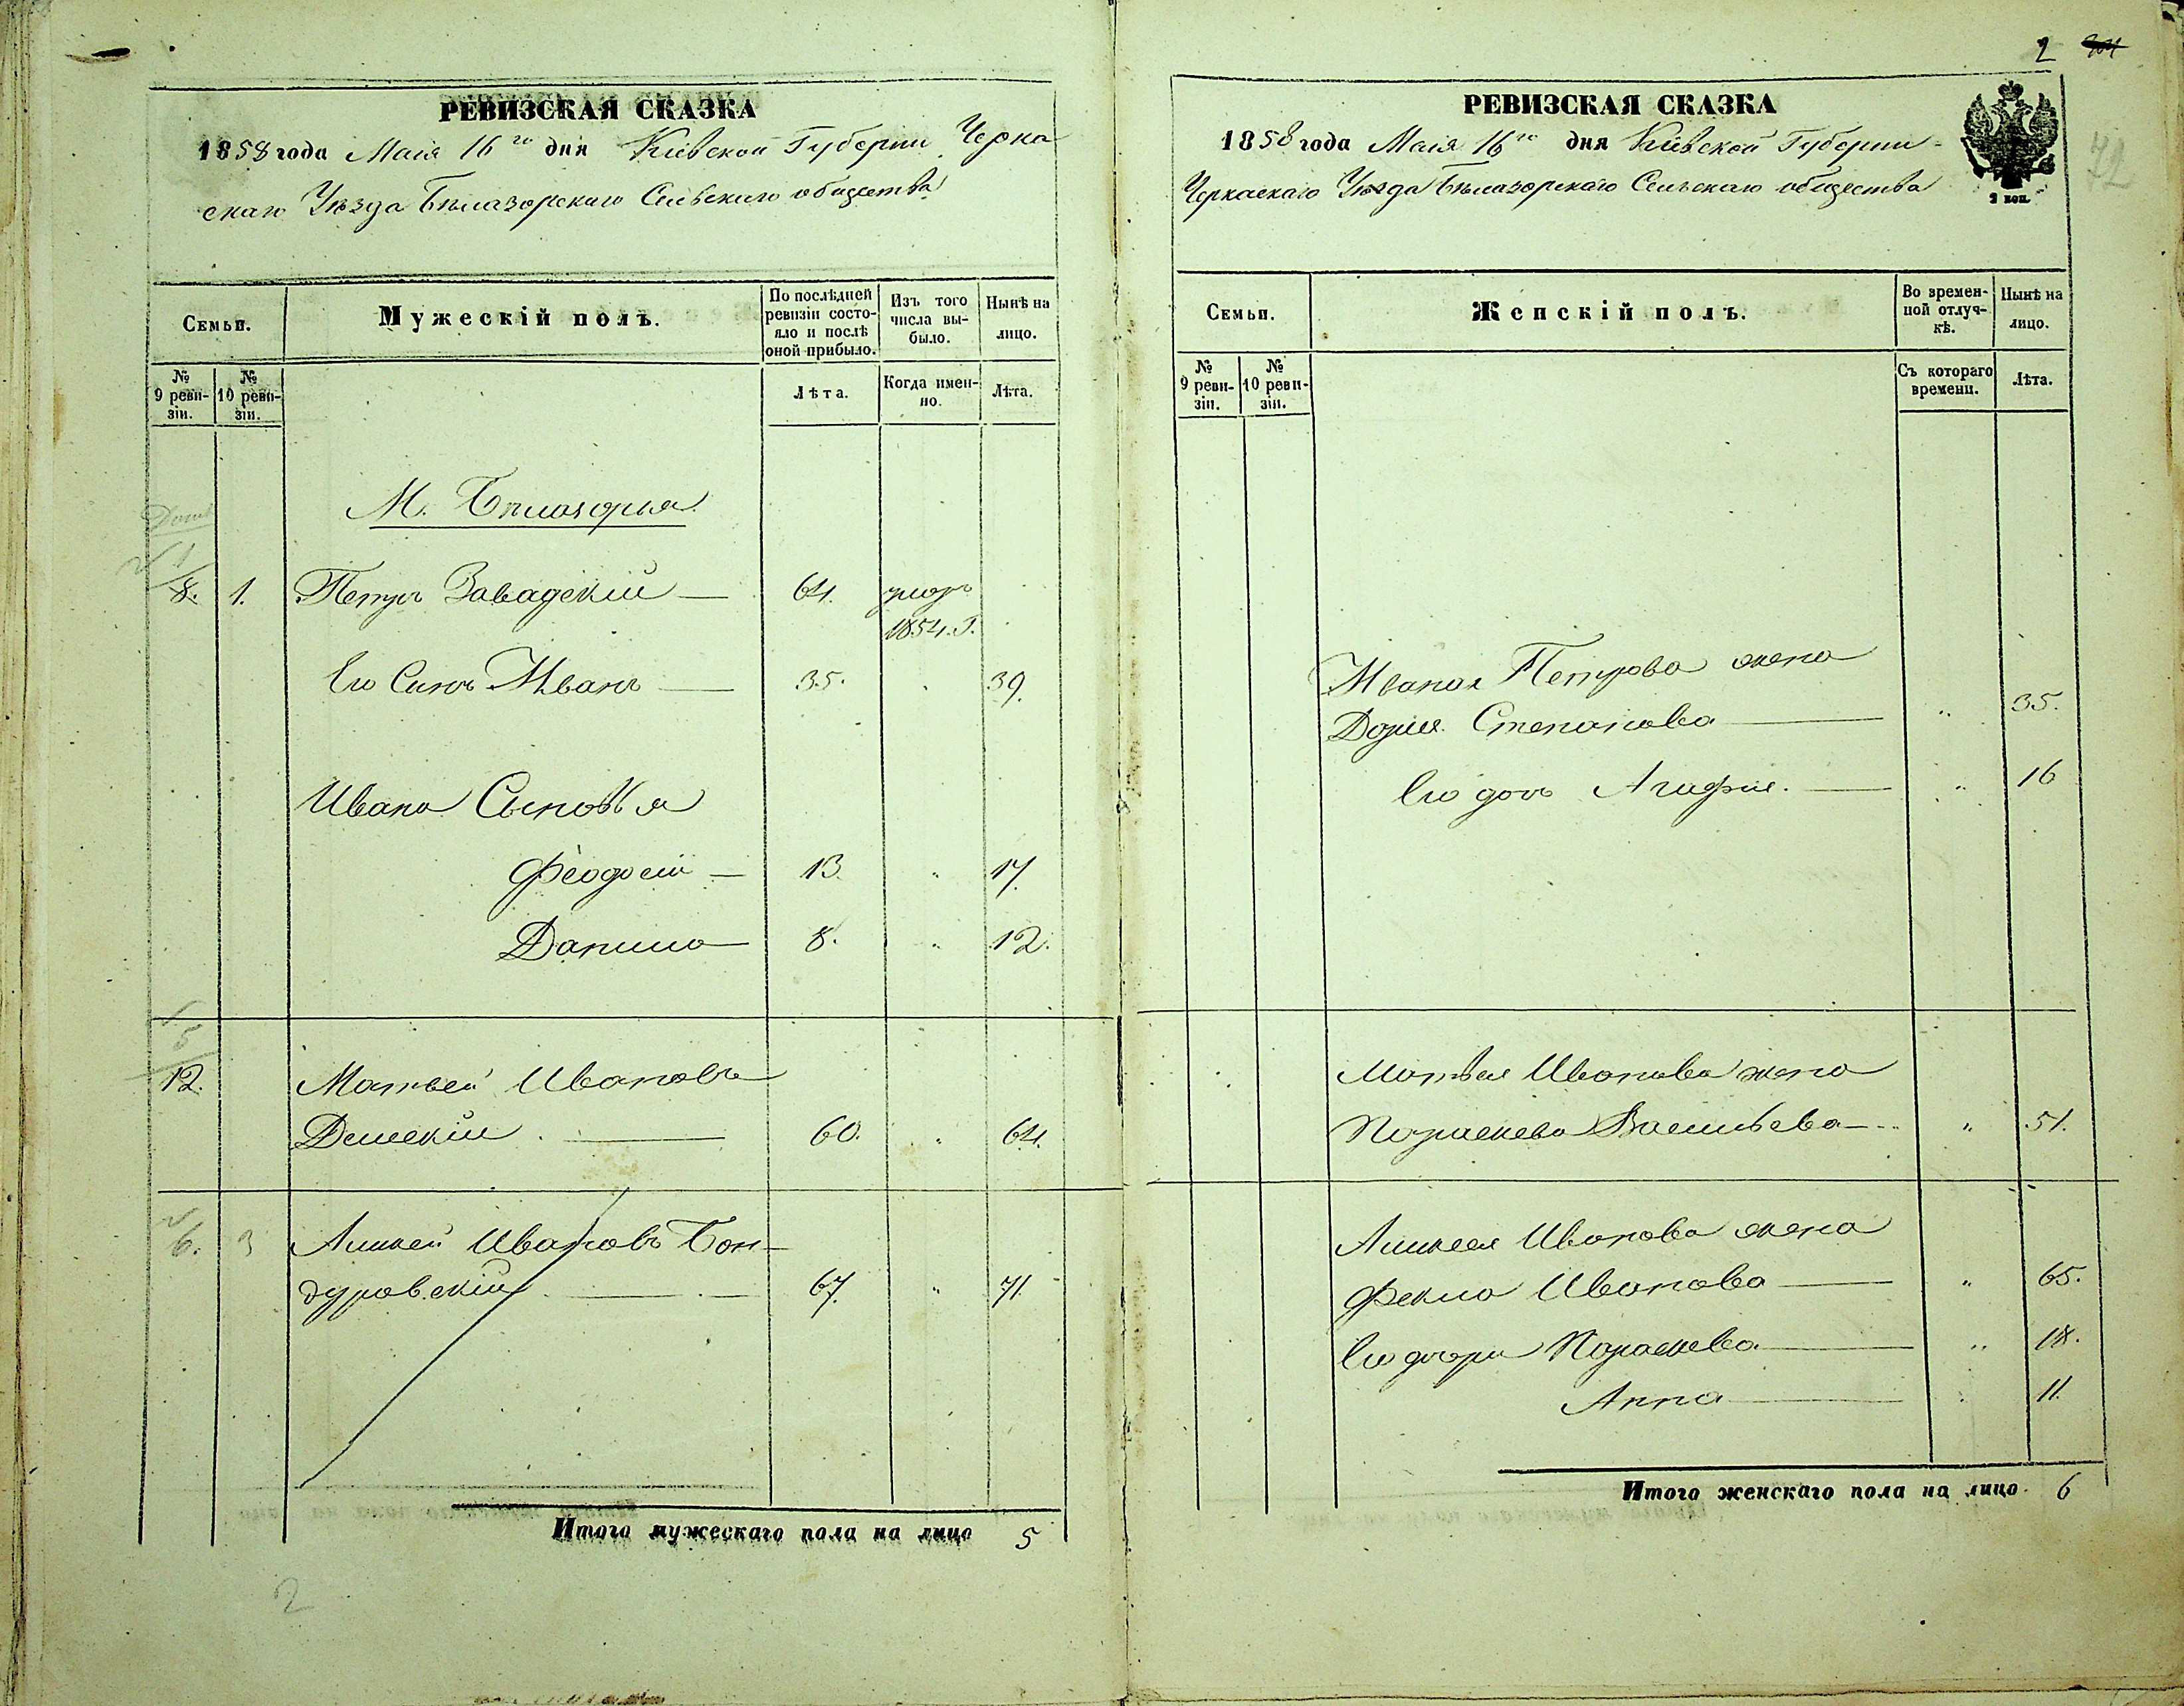 РЕВИЗСКАЯ СКАЗКА
1858 года Маія 16го дня Кіевской Губерніи Черка
скаго Уѣзда Бѣлазорскаго Сельскаго общества
Семьи.
Мужескій полъ.
По послѣдней ревизіи состояло и послѣ оной прибыло.
Изъ того числа выбыло.
Нынѣ на лицо.
№ 9 ревизіи.
№ 10 ревизіи.
Лѣта.
Когда именно.
Лѣта.
М. Бѣлазорья
8. 1. Петръ Завадскій — 64. умеръ
1854. Г.
Его Сынъ Иванъ — 35. 39.
Ивана Сыновья
Феодосій — 13. " 17.
Данило — 8. " 12.
5
12. Матвей Ивановъ
60. " 64.
6. 3 Ивановъ Бон-
дуровскій — 67. " 71.
Итого мужескаго пола на лицо 5
2
2
РЕВИЗСКАЯ СКАЗКА
1858 года Маія 16го дня Кіевской Губерніи
Черкаскаго Уѣзда Бѣлазорскаго Сельскаго общества
2 коп.
72
Семьи.
Женскій полъ.
Во временной отлучкѣ.
Нынѣ на лицо.
№ 9 ревизіи.
№ 10 ревизіи.
Съ котораго времени.
Лѣта.
Ивана Петрова жена
Дарья Степанова — " 35.
Его дочь Агафія. — " 16
Матвея Иванова жена
Параскева Васильева — " 51.
Иванова жена
Фекла Иванова — " 65.
Его дочери Параскева — " 18.
Анна — " 11.
Итого женскаго пола на лицо 6